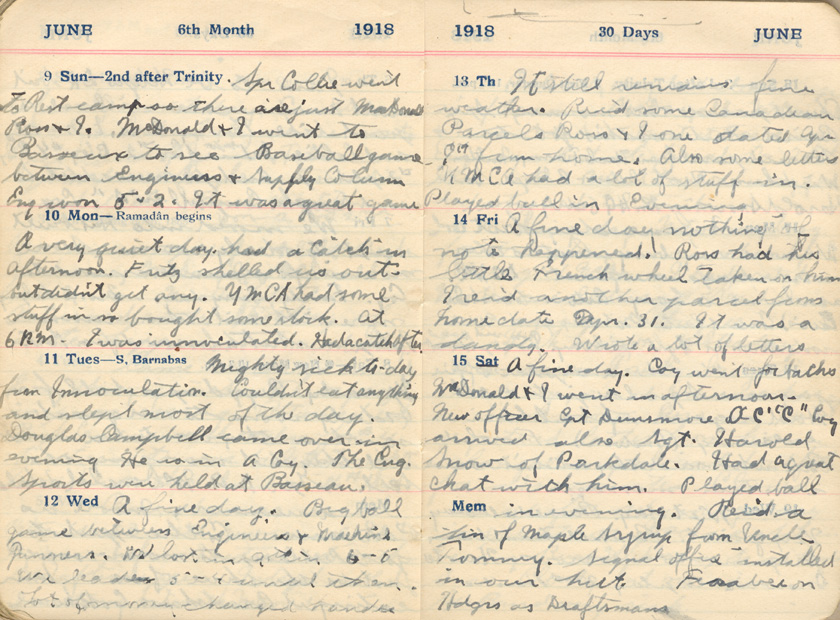 JUNE 6th Month 1918
9 Sun—2nd after Trinity. Spr Collie went
to Rest camp so there are just MacDonald
Ross & I. McDonald & I went to
Basseux to see Baseball game
between Engineers & Supply Column
Eng won 5-2. It was a great game
10 Mon—Ramadân begins
A very quiet day. had a catch in
afternoon. Fritz shelled us out
but didn't get any. YMCA had some
stuff in so bought some stock. At
6 P.M. I was innoculated. Had a catch after
11 Tues—S. Barnabas Mighty sick to-day
from Innoculation. Couldn't eat anything
and slept most of the day.
Douglas Campbell came over in
evening He is in A Coy. The Eng.
Sports were held at Basseau.
12 Wed A fine day. Big ball
game between Engineers & Machine
Gunners. We lost in 6-5
We leader 5-4 until then.
Lot of money changed hands
1918 30 Days JUNE
13 Th It still remains fine
weather. Rec'd some Canadian
Parcels Ross & I one dated Apr
from home. Also some letters
YMCA had a lot of stuff in.
Played ball in Evening
14 Fri A fine day nothing of
note happened! Ross had his
little French wheel taken on him
I rec'd another parcel from
home date Apr. 31. It was a
dandy. Wrote a lot of letters
15 Sat A fine day. Coy went for baths
McDonald & I went in afternoon.
New officer Cpt Dunsmore "C" Coy
arrived also Sgt. Harold
Snow of Parkdale. Had a great
chat with him. Played ball
Mem in evening. Rec'd a
tin of Maple Syrup from Uncle
Tommy. Signal office installed
in our hut. on
Hdqrs as Draftsmans